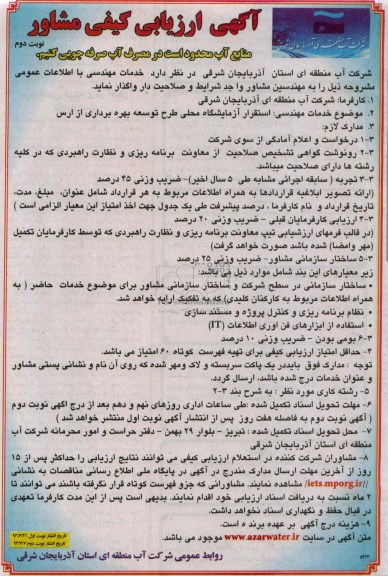 آگهی ارزیابی کیفی مشاور
نوبت دوم
منابع آب محدود است در مصرف آب صرفه جویی کنیم.
شرکت آب منطقه ای استان آذربایجان شرقی در نظر دارد خدمات مهندسی با اطلاعات عمومی
مشروحه ذیل را به مهندسین مشاور واجد شرایط و صلاحیت دار واگذار نماید.
۱. کارفرما: شرکت آب منطقه ای آذربایجان شرقی
۲. موضوع خدمات مهندسی: استقرار آزمایشگاه محلی طرح توسعه بهره برداری از ارس
۳. مدارک لازم:
۳-۱ درخواست و اعلام آمادگی از سوی شرکت
۳-۲ رونوشت گواهی تشخیص صلاحیت از معاونت برنامه ریزی و نظارت راهبردی که در کلیه
رشته ها دارای صلاحیت میباشد.
۳-۳ تجربه ( سابقه اجرائی مشابه طی ۵ سال اخیر)- ضریب وزنی ۴۵ درصد
(ارائه تصویر ابلاغیه قراردادها به همراه اطلاعات مربوط به هر قرارداد شامل عنوان، مبلغ، مدت،
تاریخ قرارداد و نام کارفرما ، درصد پیشرفت طی یک جدول جهت اخذ امتیاز این معیار الزامی است )
۳-۴ ارزیابی کارفرمایان قبلی - ضریب وزنی ۲۰ درصد
(در قالب فرمهای ارزشیابی تیپ معاونت برنامه ریزی و نظارت راهبردی که توسط کارفرمایان تکمیل
(مهر وامضا) شده باشد صورت خواهد گرفت)
۳-۵ ساختار سازمانی مشاور- ضریب وزنی ۲۵ درصد
زیر معیارهای این بند شامل موارد ذیل می باشد:
• ساختار سازمانی در سطح شرکت و ساختار سازمانی مشاور برای موضوع خدمات حاضر ( به
همراه اطلاعات مربوط به کارکنان کلیدی) که به تفکیک ارایه خواهد شد.
• نظام برنامه ریزی و کنترل پروژه و مستند سازی
• استفاده از ابزارهای فن آوری اطلاعات (IT)
۳-۶ بومی بودن - ضریب وزنی ۱۰ درصد
۴- حداقل امتیاز ارزیابی کیفی برای تهیه فهرست کوتاه ۶۰ امتیاز می باشد.
توجه : مدارک فوق بایددر یک پاکت سربسته و لاک ومهر شده که روی آن نام و نشانی پستی مشاور
و عنوان خدمات درج شده باشد، ارسال گردد.
۵- رشته کاری مورد نظر : به شرح بند ۲-۳
۶- مهلت تحویل اسناد تکمیل شده :طی ساعات اداری روزهای نهم و دهم بعد از درج آگهی نوبت دوم
( آگهی نوبت دوم به فاصله هفت روز پس از انتشار آگهی نوبت اول منتشر خواهد شد )
۷- محل تحویل اسناد تکمیل شده : تبریز - بلوار ۲۹ بهمن - دفتر حراست و امور محرمانه شرکت آب
منطقه ای استان آذربایجان شرقی
۸- مشاوران شرکت کننده در استعلام ارزیابی کیفی می توانند نتایج ارزیابی را حداکثر پس از ۱۵
روز از آخرین مهلت ارسال مدارک مندرج در آگهی در پایگاه ملی اطلاع رسانی مناقصات به نشانی
//iets.mporg.ir/ مشاهده نمایند. مشاورانی که جزو فهرست کوتاه قرار نگرفته باشند می توانند تا
۲ ماه نسبت به دریافت اسناد ارزیابی خود اقدام نمایند. بدیهی است پس از این مدت کارفرما تعهدی
در قبال حفظ و نگهداری اسناد نخواهد داشت.
۹- هزینه درج آگهی بر عهده برنده است.
متن آگهی در سایت www.azarwater.ir موجود می باشد.
روابط عمومی شرکت آب منطقه ای استان آذربایجان شرقی